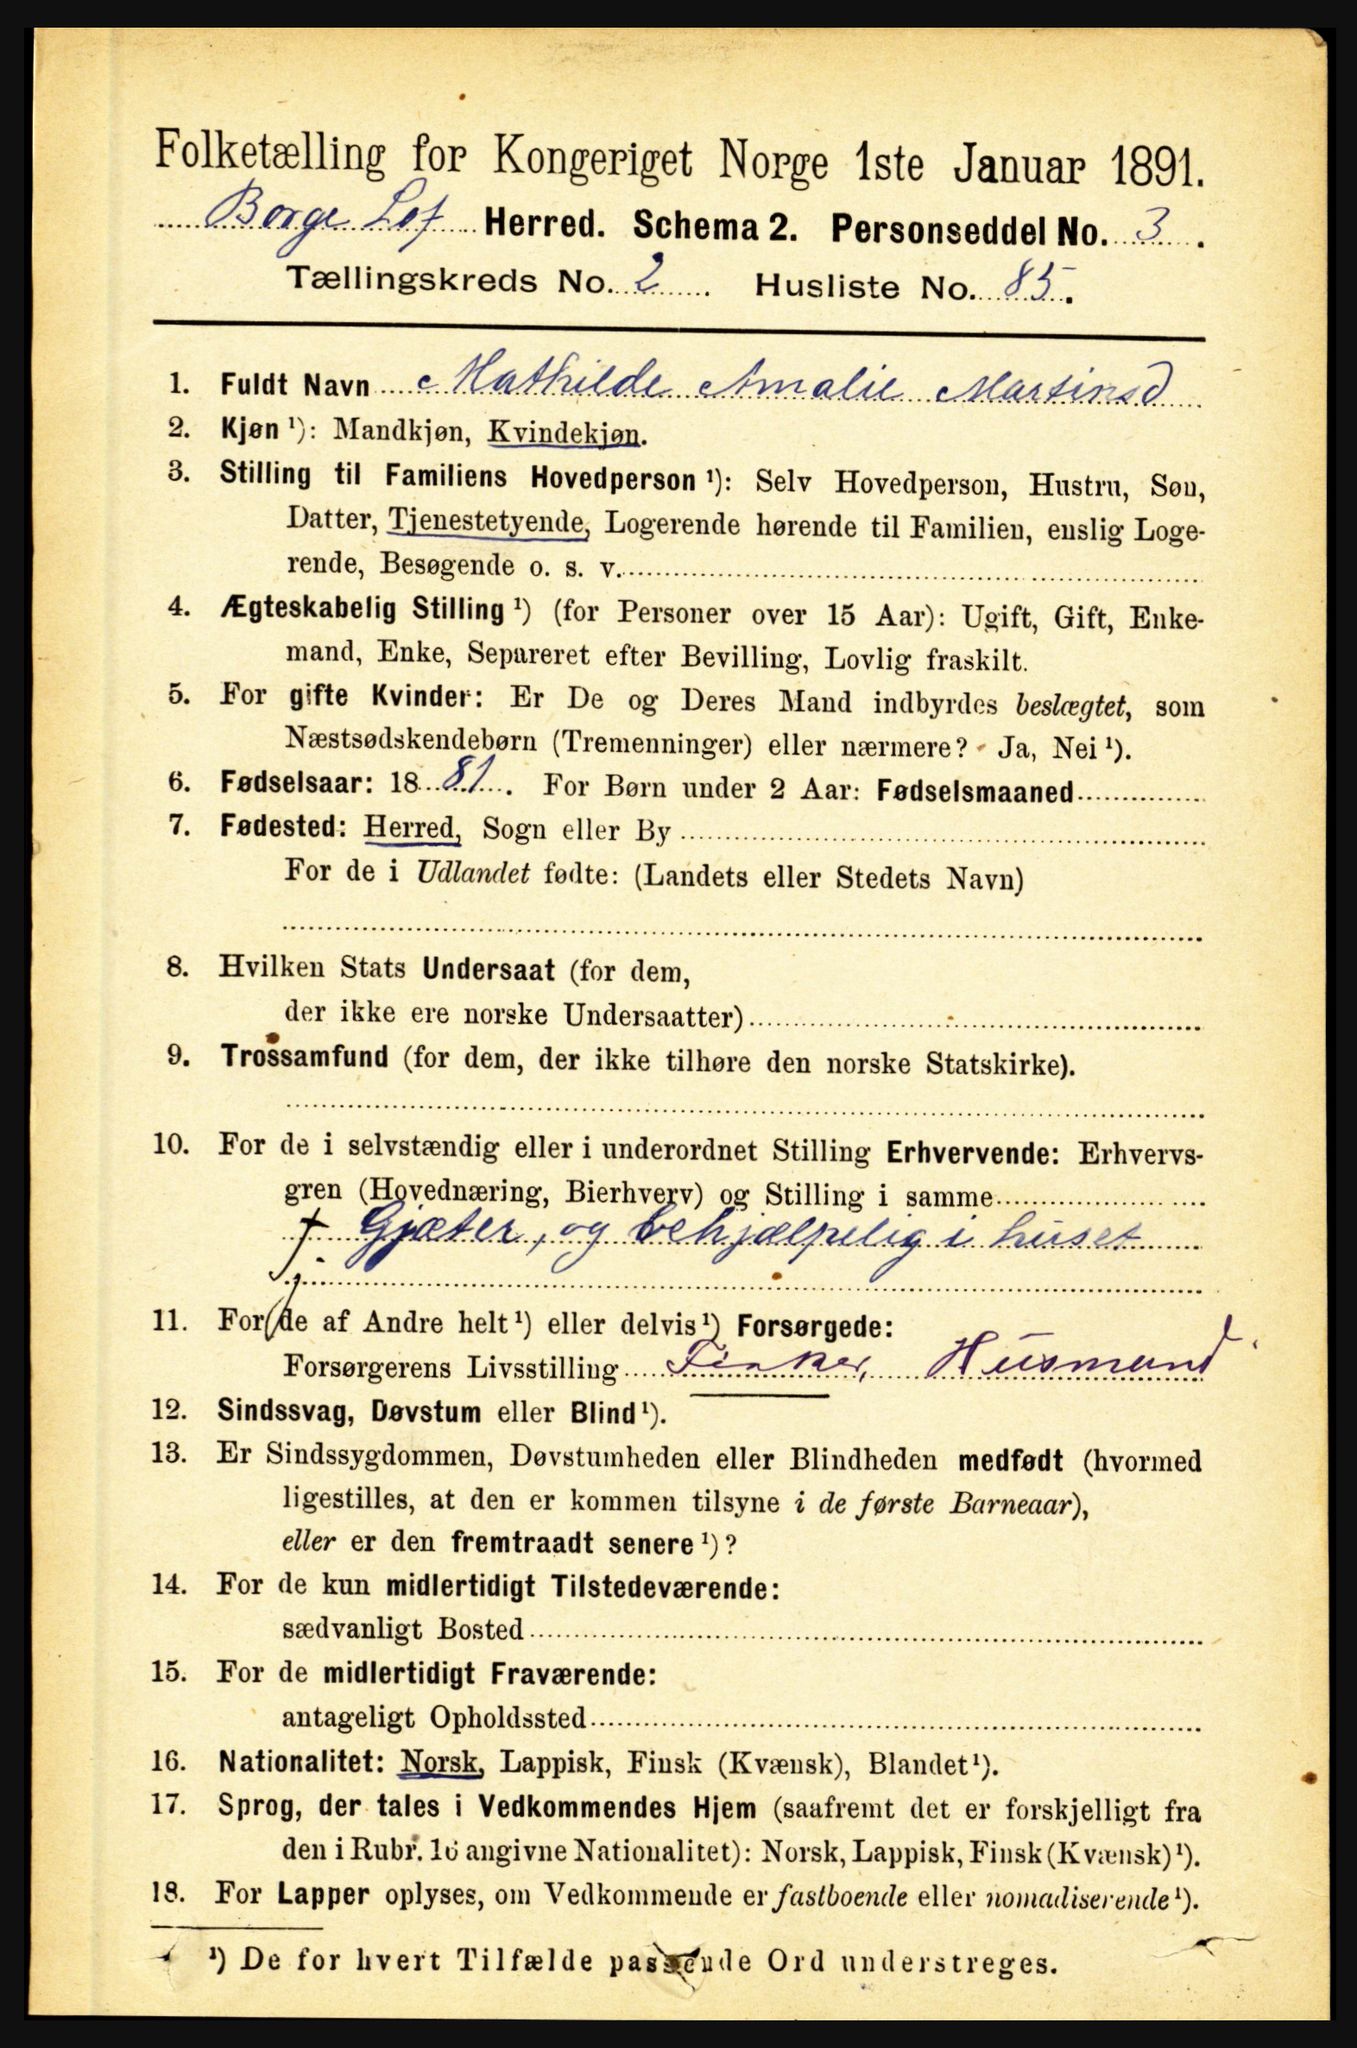 Folketælling for Kongeriget Norge 1ste Januar 1891.
Borge Lof Herred. Schema 2. Personseddel No. 3.
Tællingskreds No. 2 Husliste No. 85.
1. Fuldt Navn Mathilde Amalie Martinsd
2. Kjøn ¹): Mandkjøn, Kvindekjøn.
3. Stilling til Familiens Hovedperson ¹): Selv Hovedperson, Hustru, Søn,
Datter, Tjenestetyende, Logerende hørende til Familien, enslig Loge-
rende, Besøgende o. s. v.
4. Ægteskabelig Stilling ¹) (for Personer over 15 Aar): Ugift, Gift, Enke-
mand, Enke, Separeret efter Bevilling, Lovlig fraskilt.
5. For gifte Kvinder: Er De og Deres Mand indbyrdes beslægtet, som
Næstsødskendebørn (Tremenninger) eller nærmere? Ja, Nei ¹).
6. Fødselsaar: 1881. For Børn under 2 Aar: Fødselsmaaned
7. Fødested: Herred, Sogn eller By
For de i Udlandet fødte: (Landets eller Stedets Navn)
8. Hvilken Stats Undersaat (for dem,
der ikke ere norske Undersaatter)
9. Trossamfund (for dem, der ikke tilhøre den norske Statskirke).
10. For de i selvstændig eller i underordnet Stilling Erhvervende: Erhvervs-
gren (Hovednæring, Bierhverv) og Stilling i samme
Gjæter, og behjælpelig i huset
11. For de af Andre helt ¹) eller delvis ¹) Forsørgede:
Forsørgerens Livsstilling Fisker, Husmand
12. Sindssvag, Døvstum eller Blind ¹).
13. Er Sindssygdommen, Døvstumheden eller Blindheden medfødt (hvormed
ligestilles, at den er kommen tilsyne i de første Barneaar),
eller er den fremtraadt senere ¹)?
14. For de kun midlertidigt Tilstedeværende:
sædvanligt Bosted
15. For de midlertidigt Fraværende:
antageligt Opholdssted
16. Nationalitet: Norsk, Lappisk, Finsk (Kvænsk), Blandet ¹).
17. Sprog, der tales i Vedkommendes Hjem (saafremt det er forskjelligt fra
den i Rubr. 16 angivne Nationalitet): Norsk, Lappisk, Finsk (Kvænsk) ¹).
18. For Lapper oplyses, om Vedkommende er fastboende eller nomadiserende ¹).
¹) De for hvert Tilfælde passende Ord understreges.